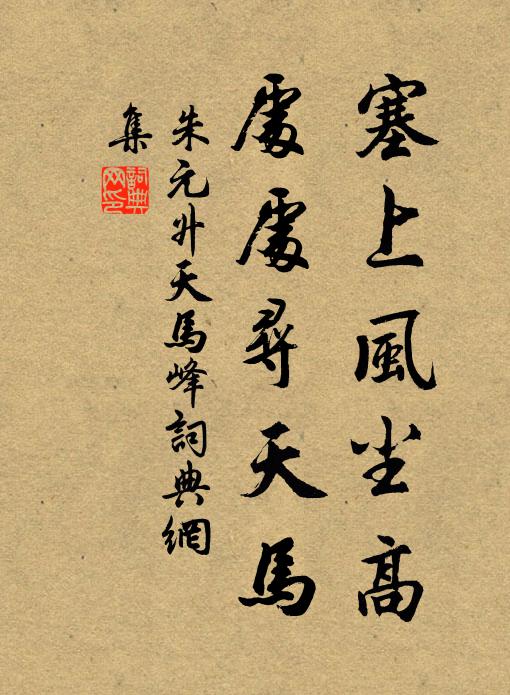 塞上風尘高
處處尋天馬
朱元升天馬峰詞典網
集
詞典
网印